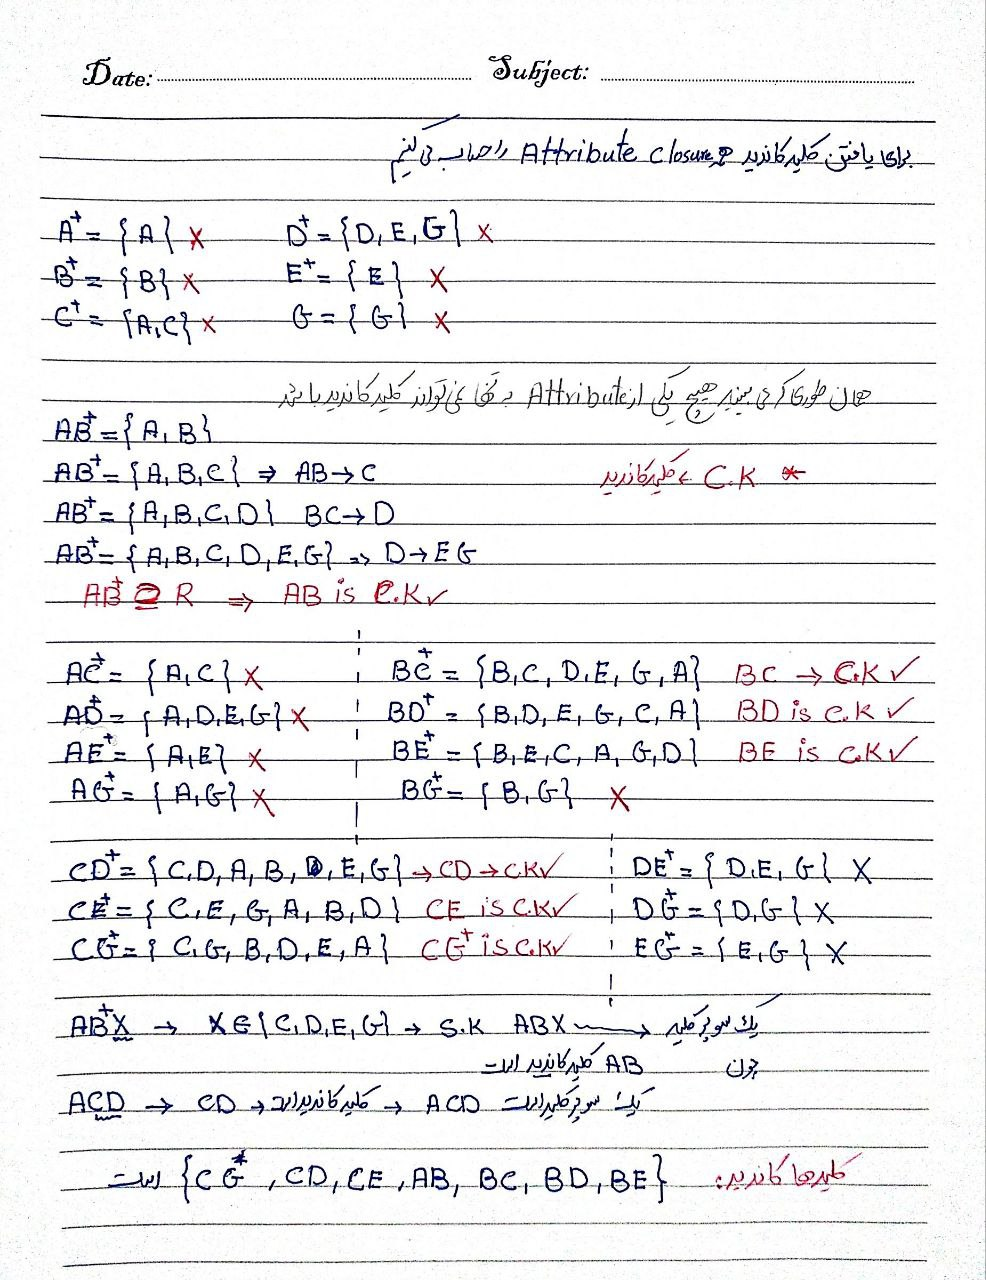 Date: Subject:
برای یافتن کلید کاندید Attribute closure را حساب می کنیم
A⁺ = {A} X D⁺ = {D, E, G} X
B⁺ = {B} X E⁺ = {E} X
C⁺ = {A, C} X G = {G} X
همان طوری که می بینید هیچ یکی از Attribute به تنهایی نمی تواند کلید کاندید باشد
AB⁺ = {A, B}
AB⁺ = {A, B, C} ⇒ AB → C * C.K کلید کاندید
AB⁺ = {A, B, C, D} BC → D
AB⁺ = {A, B, C, D, E, G} ⇒ D → EG
AB⁺ ⊇ R ⇒ AB is C.K ✓
AC⁺ = {A, C} X BC⁺ = {B, C, D, E, G, A} BC → C.K ✓
AD⁺ = {A, D, E, G} X BD⁺ = {B, D, E, G, C, A} BD is C.K ✓
AE⁺ = {A, E} X BE⁺ = {B, E, C, A, G, D} BE is C.K ✓
AG⁺ = {A, G} X BG⁺ = {B, G} X
CD⁺ = {C, D, A, B, D, E, G} → CD → C.K ✓ DE⁺ = {D, E, G} X
CE⁺ = {C, E, G, A, B, D} CE is C.K ✓ DG⁺ = {D, G} X
CG⁺ = {C, G, B, D, E, A} CG⁺ is C.K ✓ EG⁺ = {E, G} X
AB⁺X → X ∈ {C, D, E, G} → S.K ABX → یک سوپر کلید
چون AB کلید کاندید است
ACD → CD → کلید کاندید است → ACD یک سوپر کلید است
کلیدها کاندید: {CG*, CD, CE, AB, BC, BD, BE} است